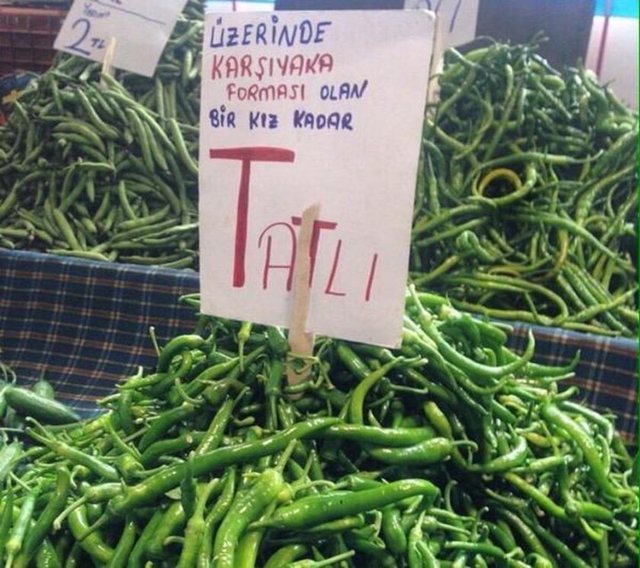 2 TL
ÜZERİNDE
KARŞIYAKA
FORMASI OLAN
BİR KIZ KADAR
TATLI